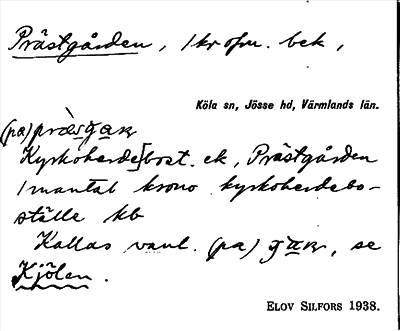 Prästgården, 1 kr ofm. bek,
Köla sn, Jösse hd, Värmlands län.
(pa) præsgaɳ
Kyrkoherde]bost. ek, Prästgården
1 mantal krono kyrkoherdebo-
ställe kb
Kallas vanl. (pa) gaɳ, se
Kjölen.
ELOV SILFORS 1938.